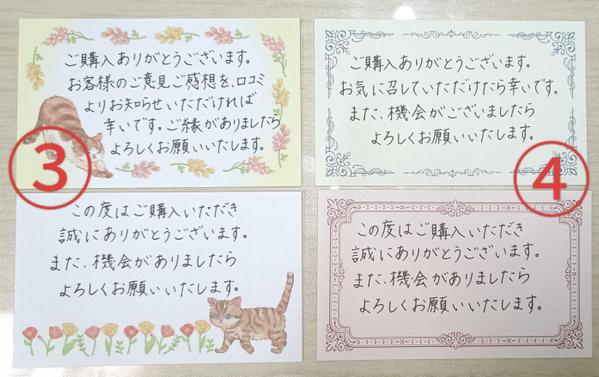 ご購入ありがとうございます。
お客様のご意見ご感想を、口コミ
よりお知らせいただければ
幸いです。ご縁がありましたら
よろしくお願いいたします。
③
この度はご購入いただき
誠にありがとうございます。
また、機会がありましたら
よろしくお願いいたします。
ご購入ありがとうございます。
お気に召していただけたら幸いです。
また、機会がございましたら
よろしくお願いいたします。
④
この度はご購入いただき
誠にありがとうございます。
また、機会がありましたら
よろしくお願いいたします。